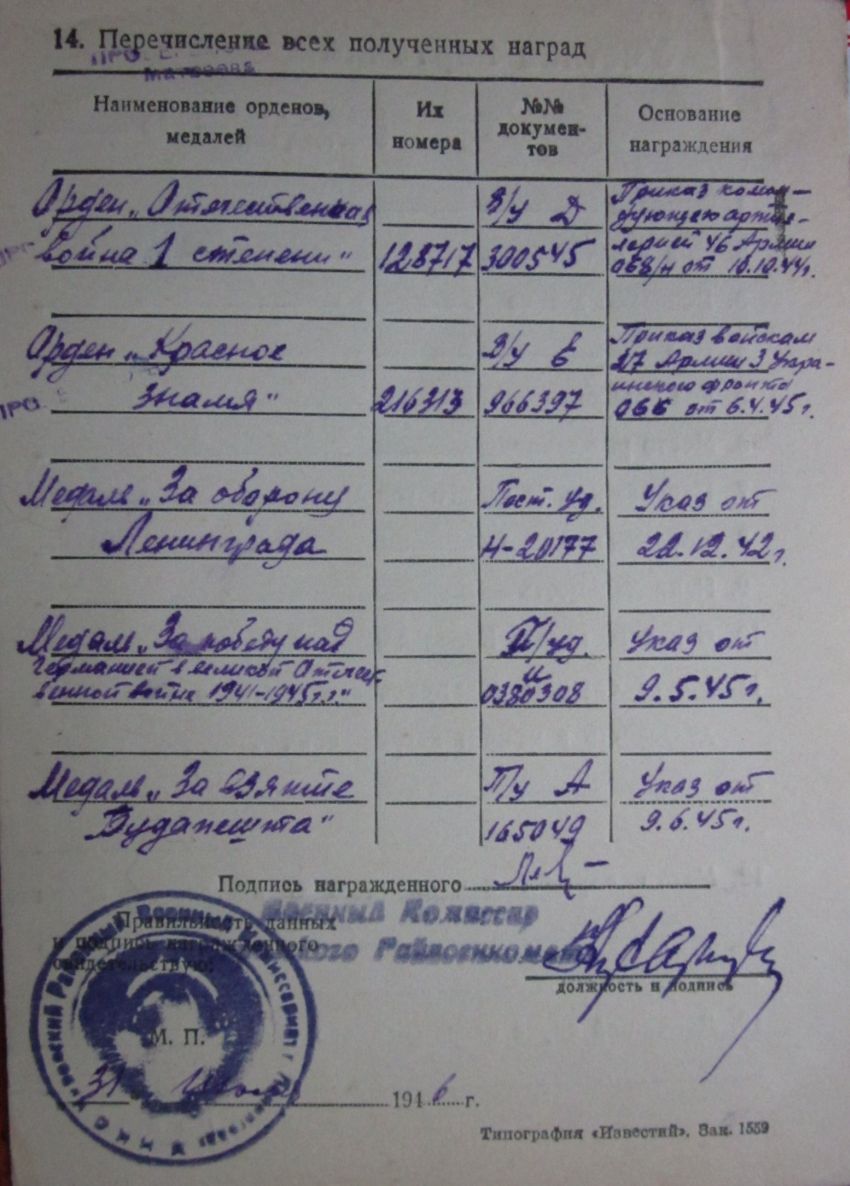 14. Перечисление всех полученных наград
Наименование орденов, медалей
Их номера
№№ документов
Основание награждения
Орден „Отечественная
война 1 степени"
128717
В/у Д
300545
Приказ коман-
дующего артил-
лерией 46 Армии
068/н от 10.10.44г.
Орден „Красное
Знамя"
216313
В/у Е
966397
Приказ войскам
27 Армии 3 Укра-
инского фронта
066 от 6.4.45г.
Медаль „За оборону
Ленинграда
Пост. уд.
Н-20177
Указ от
22.12.42г.
Медаль „За победу над
Германией в великой Отечест
венной войне 1941-1945г.г."
П/уд.
И
0380308
Указ от
9.5.45г.
Медаль „За взятие
Будапешта"
П/у А
165049
Указ от
9.6.45г.
Подпись награжденного
Правильность данных
и подпись награжденного
свидетельствую:
Военный Комиссар
Райвоенкомата
должность и подпись
М. П.
31
1946 г.
Типография «Известий». Зак. 1559